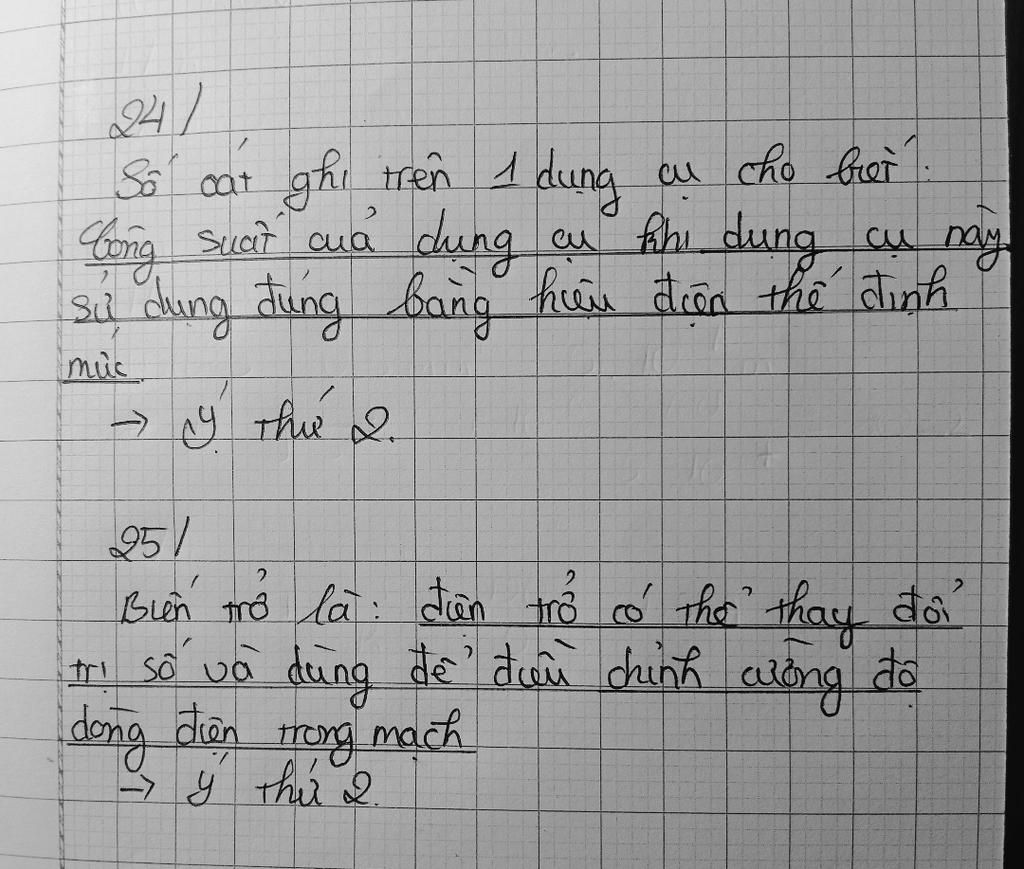 24/
Số oát ghi trên 1 dụng cụ cho biết:
Công suất của dụng cụ khi dụng cụ này
sử dụng đúng bằng hiệu điện thế định
mức
→ Ý thứ 2.
25/
Biến trở là: điện trở có thể thay đổi
trị số và dùng để điều chỉnh cường độ
dòng điện trong mạch
→ Ý thứ 2.